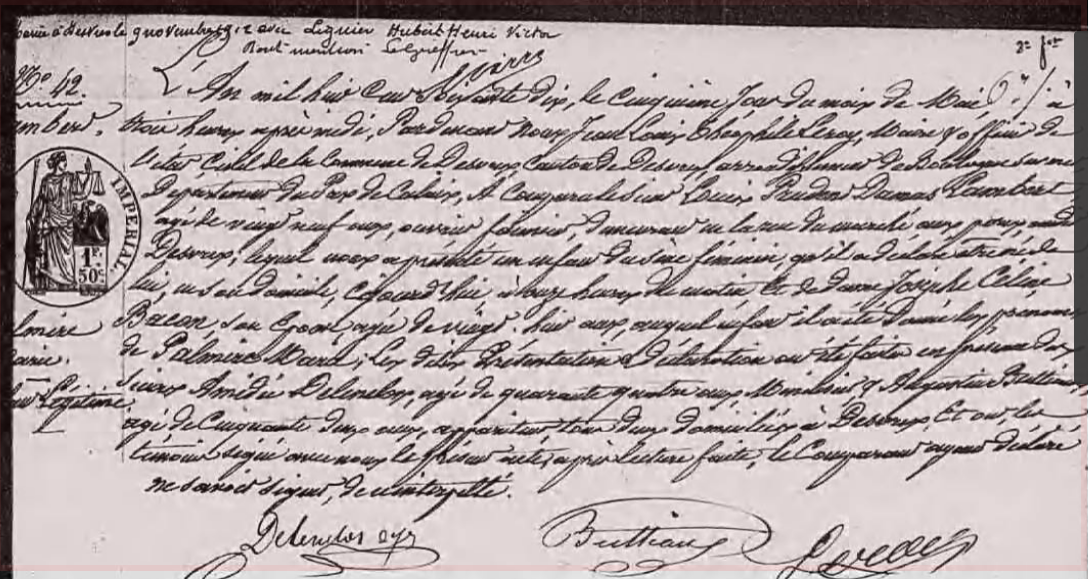 mariée à Desvres le 9 novembre 1912 avec Liquier Hubert Henri Victor
Dont mention Le Greffier
2e for
N° 42.
L'An mil huit Cent Soixante dix, le Cinquième Jour du mois de Mai, à
Lambert.
trois heures après midi, Pardevant Nous Jean Louis Théophile Leroy, Maire & officier de
l'état Civil de la Commune de Desvres, Canton de Desvres, arrondissement de Boulogne sur mer
Département du Pas de Calais, A Comparu le Sieur Louis Prudent Damas Lambert
agé de vingt neuf ans, ouvrier, demeurant en la rue du marché aux porcs,
Desvres, lequel nous a présenté un enfant du sexe féminin, qu'il a déclaré être né de
lui, en son domicile, cejourd'hui, à onze heures du matin, Et de dame Josèphe Céline
IMPERIAL.
1F.
50c
Palmire
Bacon, son Epouse, agée de vingt-huit ans, auquel enfant il a été donné les prénoms
Marie.
de Palmire Marie; Les dites Présentation & Déclaration ont été faites en présence des
Légitime
sieurs Amédée Delenclos, agé de quarante quatre ans, & Augustin Bultiaux,
agé de Cinquante deux ans, appariteur tous deux domiciliés à Desvres, Et ont les
témoins signé avec nous le présent acte, après lecture faite, le Comparant ayant déclaré
ne savoir signer, de ce interpellé.
Delenclos Bultiaux Leroy